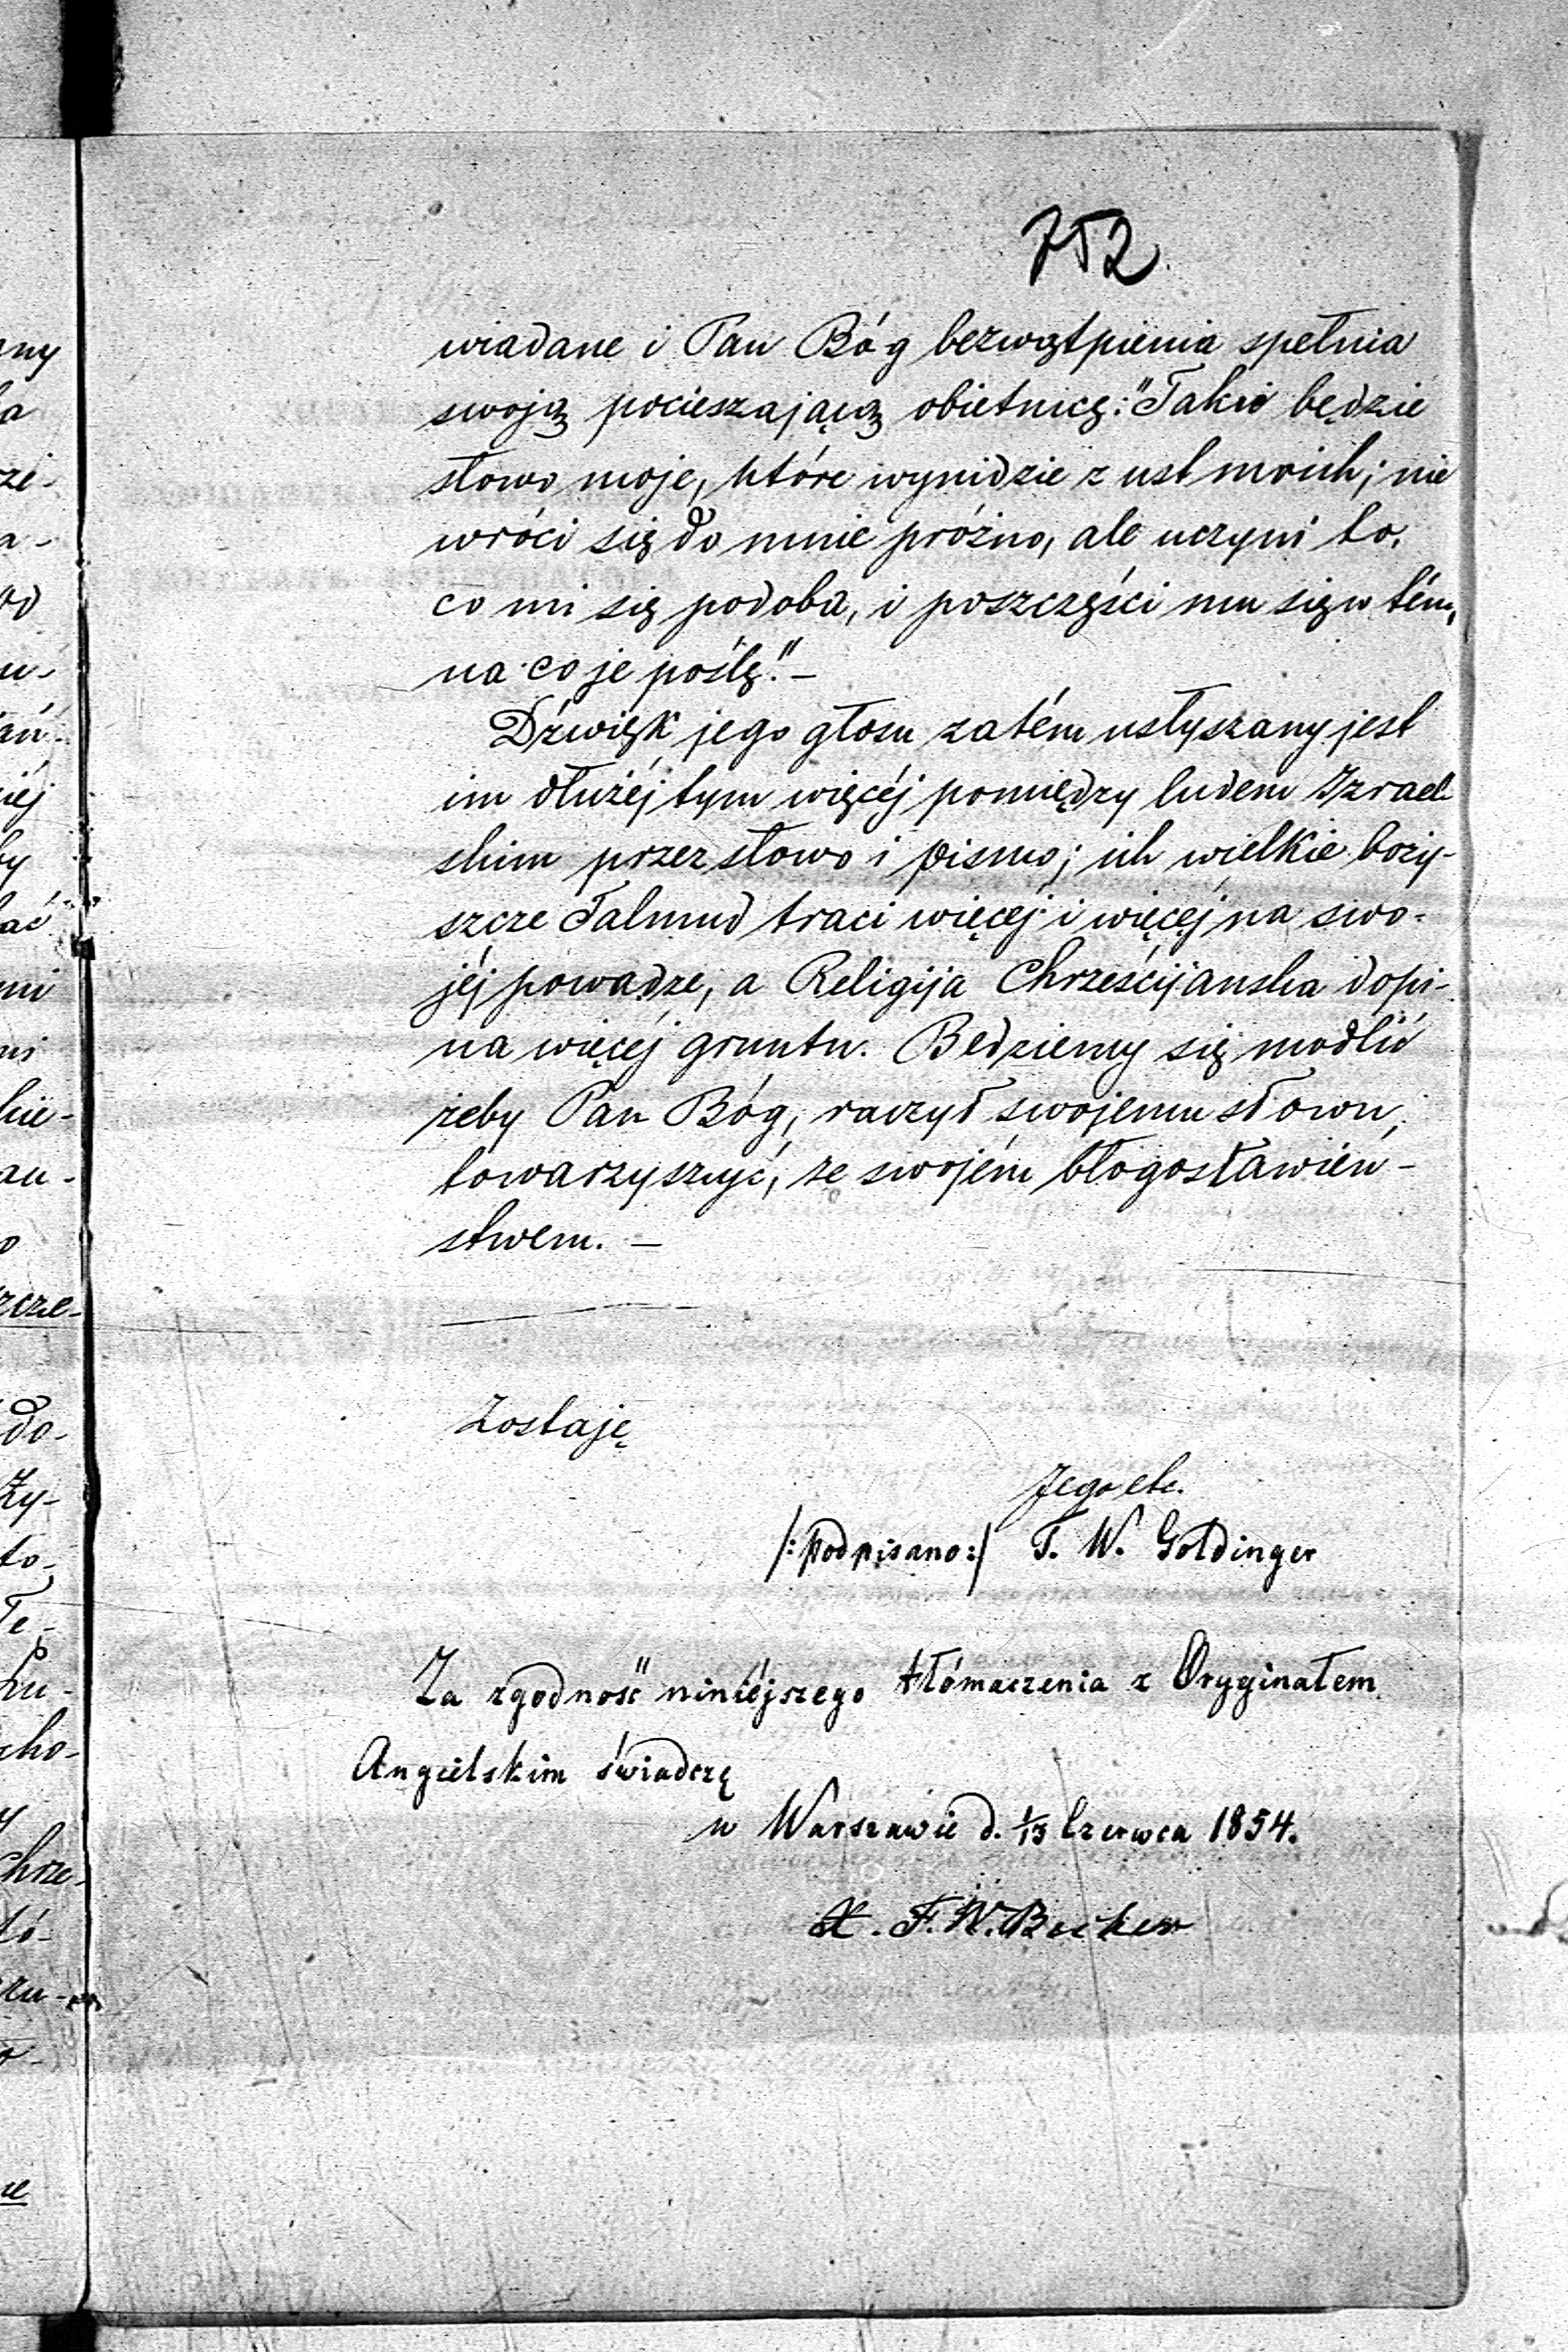 752
wiadane i Pan Bóg bezwątpienia spełnia
swoją pocieszającą obietnicę: "Takie będzie
słowo moje, które wynidzie z ust moich; nie
wróci się do mnie próżno, ale uczyni to,
co mi się podoba, i poszczęści mu się w tém,
na co je poślę." —
Dźwięk jego głosu zatém usłyszany jest
im dłużéj tym więcéj pomiędzy ludem Izrael-
skim przez słowo i pismo; ich wielkie boży-
szcze Talmud traci więcej i więcéj na swo-
jéj powadze, a Religija Chrześcijanska dopi-
na więcéj gruntu. Bedziemy się modlić
żeby Pan Bóg, raczył swojemu słowu,
towarzyszyć, ze swojém błogosławień-
stwem. —
Zostaję
Jego etc.
/:podpisano:/ T. W. Goldinger
Za zgodność niniéjszego tłómaczenia z Oryginałem
Angielskim świadczę
w Warszawie d. 1/13 Czerwca 1854.
X. F. W. Becker
ny
a
rze-
a-
od
u-
iéj
by
ać
mi
ni
kie-
au-
o
szcze-
do-
Zy-
to-
Te-
Lu-
cho-
y
Chrze-
tó-
zu-
o-